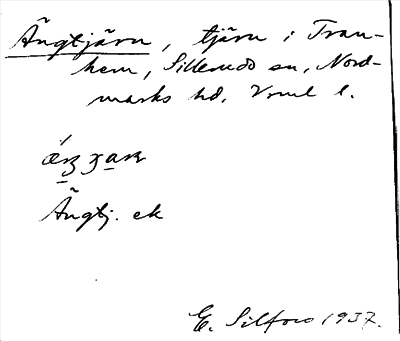 Ängtjärn, tjärn i Tran-
hem, Sillerudd sn, Nord-
marks hd, Vrml l.
Ängtj. ek
E. Silfors 1937.